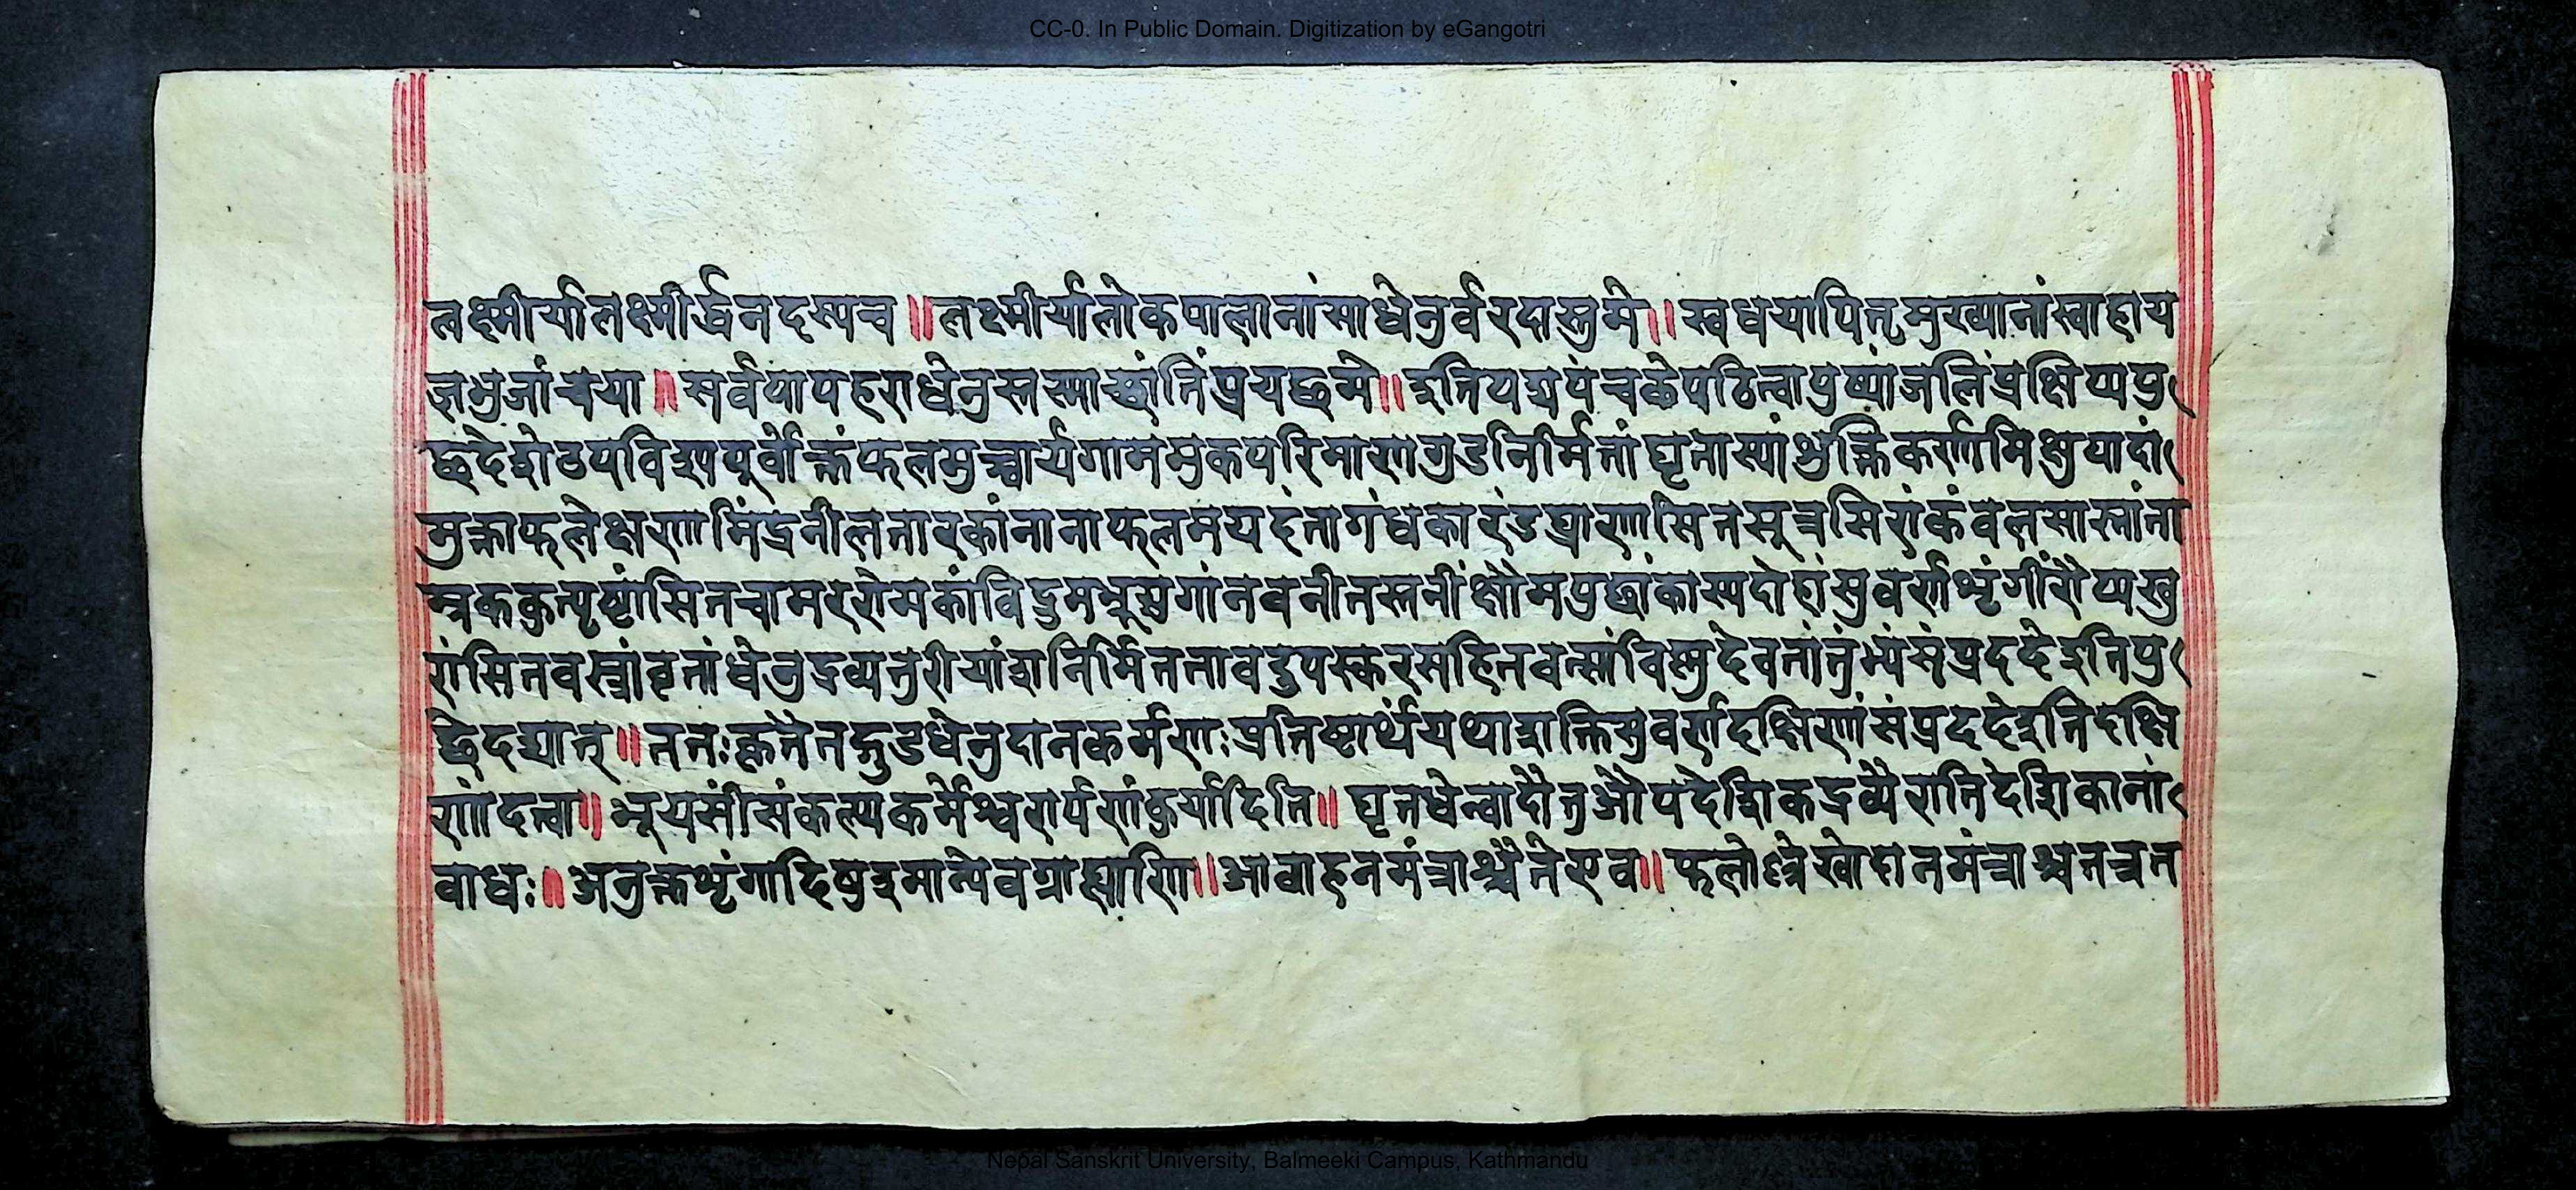 CC-0. In Public Domain. Digitization by eGangotri
लक्ष्मीर्यालक्ष्मीर्द्धनदस्यच ॥ लक्ष्मीर्यालोकपालानांसाधेनुर्वरदास्तुमे ॥ स्वधयापितृमुख्यानांस्वाहाय
ज्ञभुजांचया ॥ सर्वपापहराधेनुस्तस्माच्छांतिंप्रयछमे ॥ इतिपद्यपंचकेपठित्वापुष्पांजलिंप्रक्षिप्यपु
घृतास्यांशुक्तिकर्णामिक्षुपादां
मुक्ताफलेक्षणामिंद्रनीलतारकांनानाफलमयदंतागंधकारंडघ्राणासितसूत्रसिरांकंवलसास्नांता
म्रककुत्पृष्टांसितचामररोमकांविद्रुमभ्रूयुगांनवनीतस्तनींक्षौमपुछांकास्यदोहांसुवर्णशृंगींरौप्यखु
रांसितवस्त्रांवृतांधेनुद्रव्यतुरीयांशनिर्मिततावदुपस्करसहितवत्सांविष्णुदेवतांतुंभ्यंसंप्रददेइतिपु
छेदद्यात् ॥ ततःकृतैतद्गुडधेनुदानकर्मणःप्रतिष्टार्थंयथाशक्तिसुवर्णदक्षिणांसंप्रददेइतिदक्षि
णांदत्वा ॥ भूयसींसंकल्प्यकर्मेश्वरार्पणंकुर्यादिति ॥ घृतधेन्वादौतुऔपदेशिकद्रव्यैरातिदेशिकानां
वाधः ॥ अनुक्तशृंगादिषुइमान्येवग्राह्याणि ॥ आवाहनमंत्राश्चैतेएव ॥
Nepal Sanskrit University, Balmeeki Campus, Kathmandu